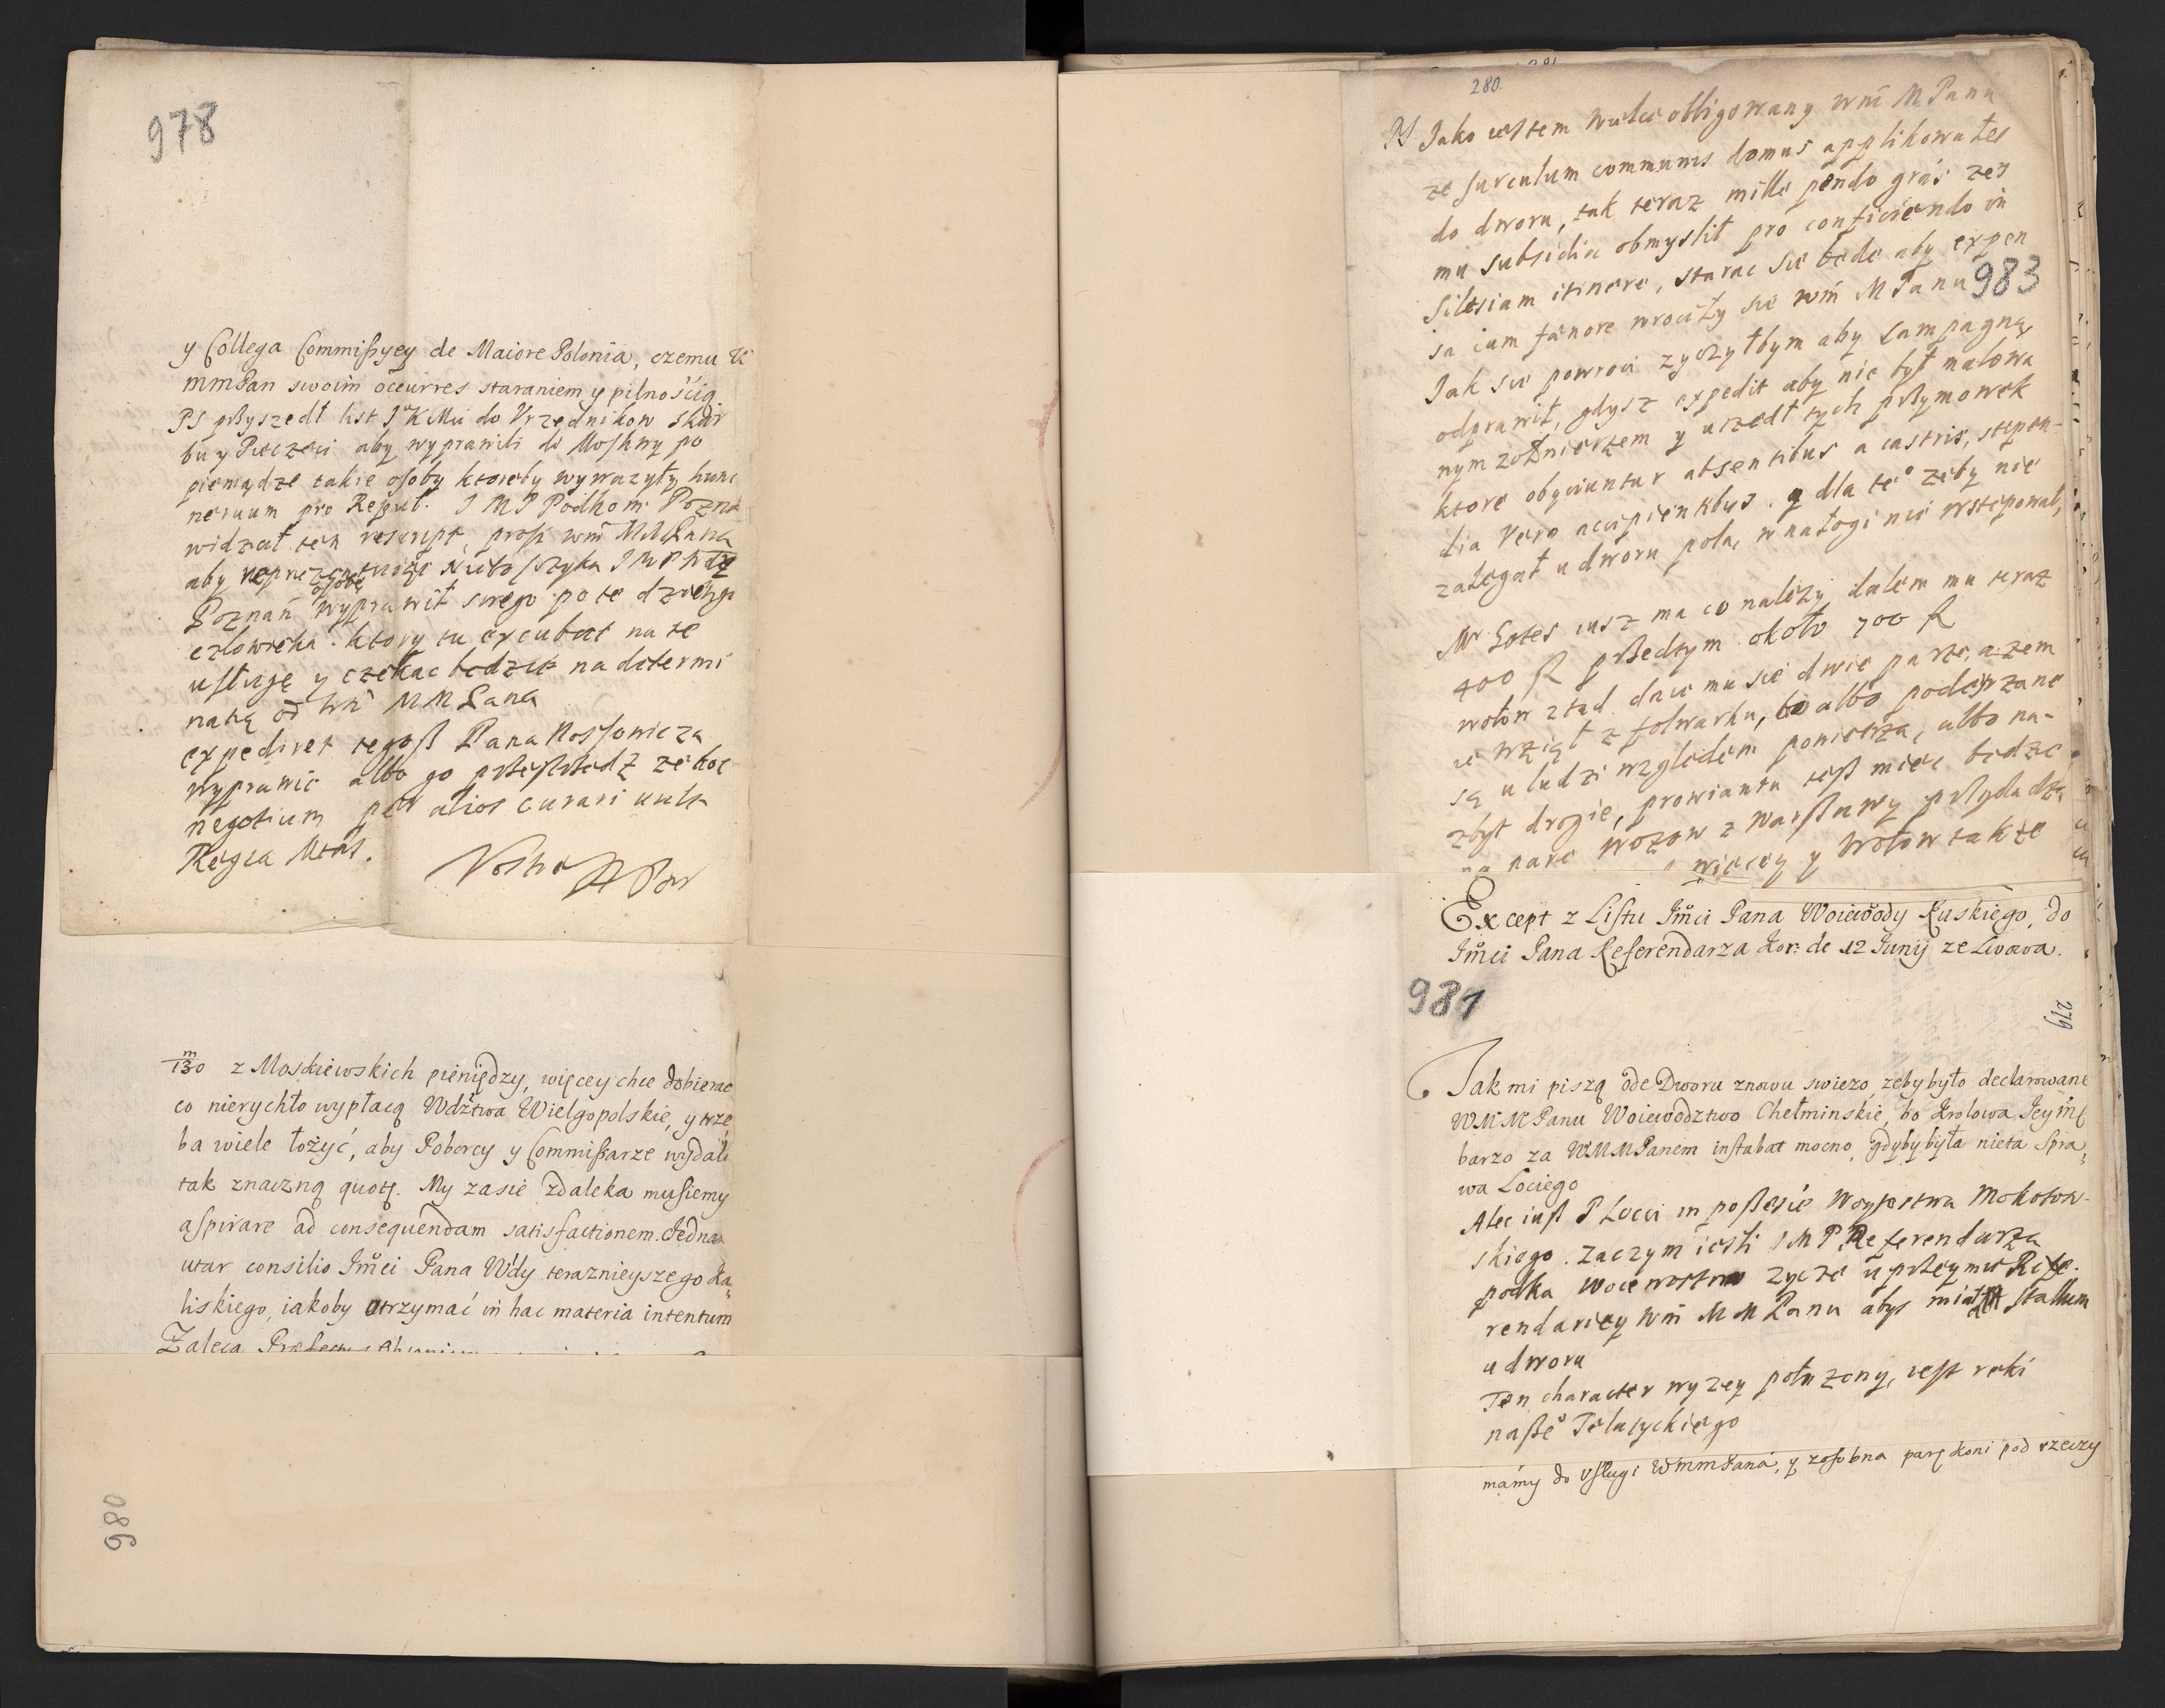 978
y Collega Commißyey de Maiore Polonia, czemu
mmPan swoim occurres staraniem y pilnością
PS przyszedł list J KMci do Vrzędnikow Skar
bu y Pieczęci aby wyprawili do Moskwy po
pieniądze takie osoby ktoreby wyrazyły hunc
neruum pro Republ. J M P Podkom: Pozna
widział ten rescript, prosi wm̄ MMPana
aby
osobę
Poznań wyprawił swego po te
człowieka. ktory tu excubat na te
usługę y czekac będzie na determi
natią od Wm̄ MMPana
expediret tegoß Pana Nossowicza
wyprawic albo go
negotium per alios curari
Regia Mtas.
m
130 z Moskiewskich pieniędzy, więcey chce dobierac
co nierychło wypłacą Wdztwa Wielgopolskie, y trze
ba wiele łożyć, aby Poborcy y Commißarze wydali
tak znaczną quotę. My zasie zdaleka musiemy
aspirare ad consequendam satisfactionem. Jedna
utar consilio Jmci Pana Wdy teraznieyszego Ka,,
liskiego, iakoby otrzymać in hac materia intentum
Zaleca
980
280.
PS. Jako iestem wielce obligowany wm̄ MPanu
ze surculum communis domus applikowałes
do dworu, tak teraz mille pendo gras zes
mu subsidia obmyslił pro conficiendo in
Silesiam itinere, starac sie bede aby expen
sa cum fænore wrociły sie wm̄ MPanu
983
Jak sie powroci zyczyłbym aby campagną
odprawił, gdysz expedit aby nie był malowa
nym zołnierzem y uszedł tych przymowek
ktore obyciuntur absentibus a castris, stipen-
dia vero accipientibus. y dla te° zeby nie
zalegał u dworu pola, w nałogi nie wstepował,
Mr Lotes iusz ma co nalezy dalem mu teraz
400 R przedtym około 700 R
wołow ztad daie mu sie dwie parze, a zem
ie wziął z folwarku, bo albo podeyrzane
są u ludzi względem powietrza, albo na-
zbyt drogie, prowiantu teß miec będzie
na parę wozow z Warßawy przydadzą
więcey y wołow takze
Except z Listu Jmci Pana Woiewody Ruskiego, do
Jmci Pana Referendarza Kor: de 12 Junij ze Lwowa.
981
279
Jak mi piszą ode Dworu znowu swiezo, zeby było declarowane
WMMPanu Woiewodztwo Chełminskie, bo Krolowa Jeym̄
barzo za WMMPanem instabat mocno, gdyby była nieta Spra,,
wa Lociego
Alec iuß P Locci in poßesie Woytostwa Mokotow-
skiego. zaczym iesli J M P Referendarza
potka woiewostwo zycze uprzeymie Refe-
rendariey Wm̄ MMPanu abys miał stallum
u dworu
Ten character wyzey położony, iest ręki
naße° Telatyckiego
mámy do vsługi WmmPaná, y zosobna parę koni pod rzeczy